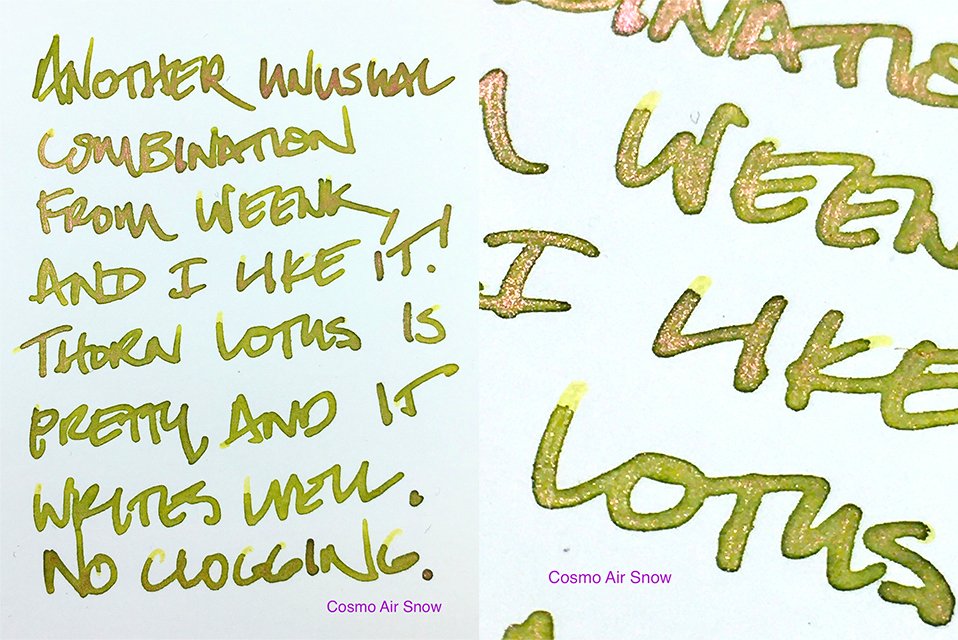 ANOTHER UNUSUAL
COMBINATION
FROM WEENK,
AND I LIKE IT!
THORN LOTUS IS
PRETTY AND IT
WRITES WELL.
NO CLOGGING.
Cosmo Air Snow
BINATIO
WEEN
I LIKE
LOTUS
Cosmo Air Snow